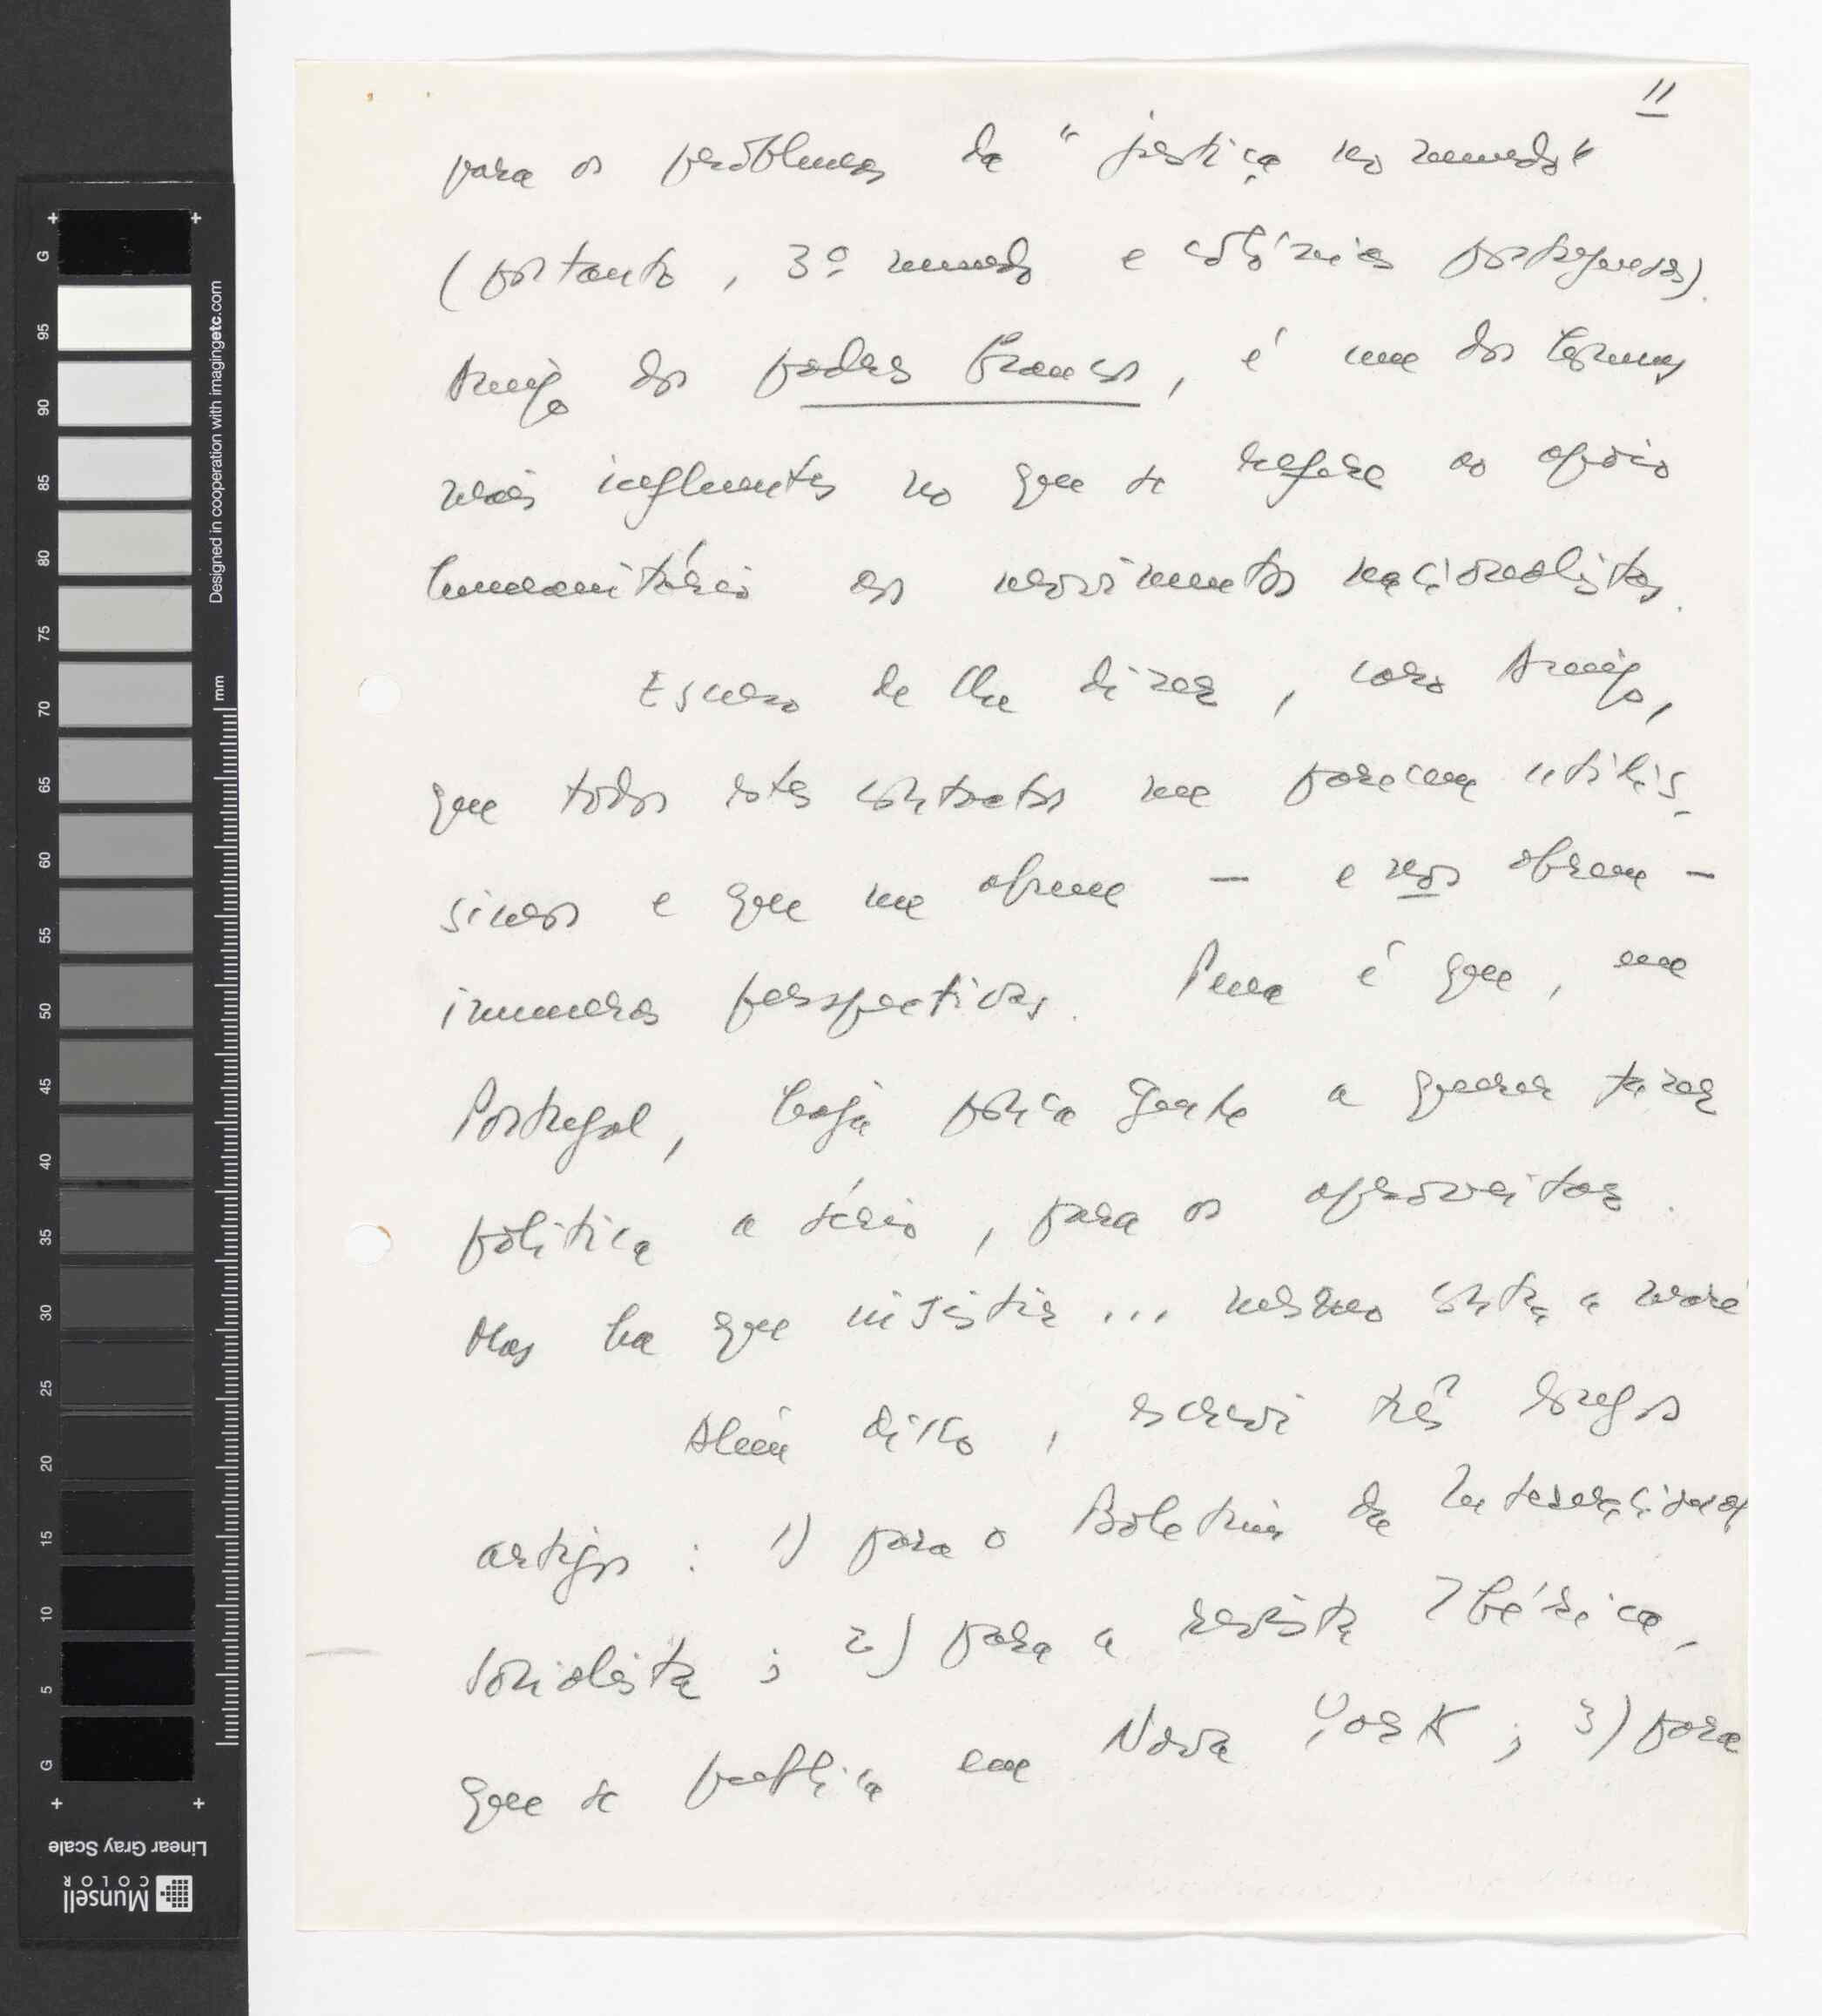 11
para os problemas da "justiça no mundo"
(portanto, 3º mundo e colónias portuguesas).
Amigo dos padres brancos, é um dos homens
mais influentes no que se refere ao apoio
humanitário aos movimentos nacionalistas.
Escuso de lhe dizer, caro Amigo,
que todos estes contactos me parecem utilís-
simos e que me abrem — e nos abrem —
inumeras perspectivas. Pena é que, em
Portugal, haja pouca gente a querer fazer
política a sério, para os aproveitar.
Mas ha que insistir... mesmo contra a maré
Além disso, escrevi três longos
artigos: 1) para o Boletim da Internacional
Socialista; 2) para a revista Ibérica,
que se publica em Nova York; 3) para
+ +
G
95
90
85
80
75
70
65
60
55
50
45
40
35
30
25
20
15
10
5
G
+ +
mm
Designed in cooperation with imagingetc.com
Linear Gray Scale
Munsell
COLOR